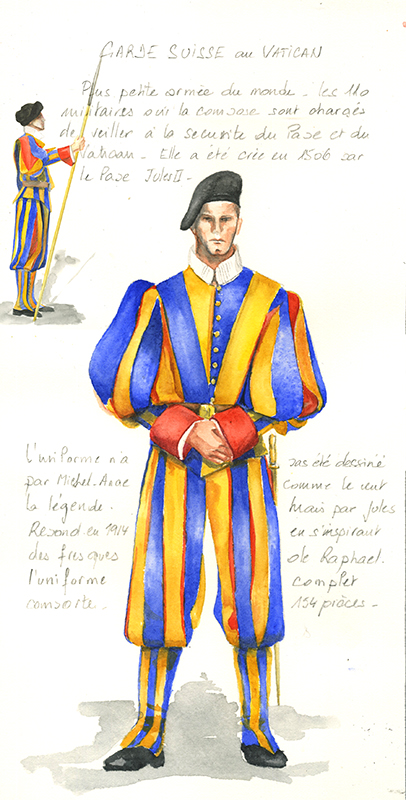 GARDE SUISSE au VATICAN
Plus petite armée du monde - les 110
militaires qui la compose sont chargés
de veiller à la securite du Pape et du
Vatican - Elle a été crée en 1506 par
le Pape Jules II -
L'uniforme n'a pas été dessiné
par Michel-Ange comme le veut
la légende. mais par Jules
Repond en 1914 en s'inspirant
des fresques de Raphael.
l'uniforme complet
comporte. 154 pièces -